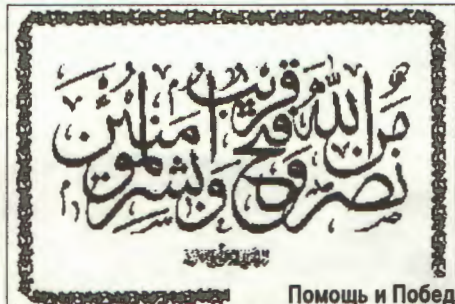 نصر من الله وفتح قريب وبشر المؤمنين
Помощь и Побед